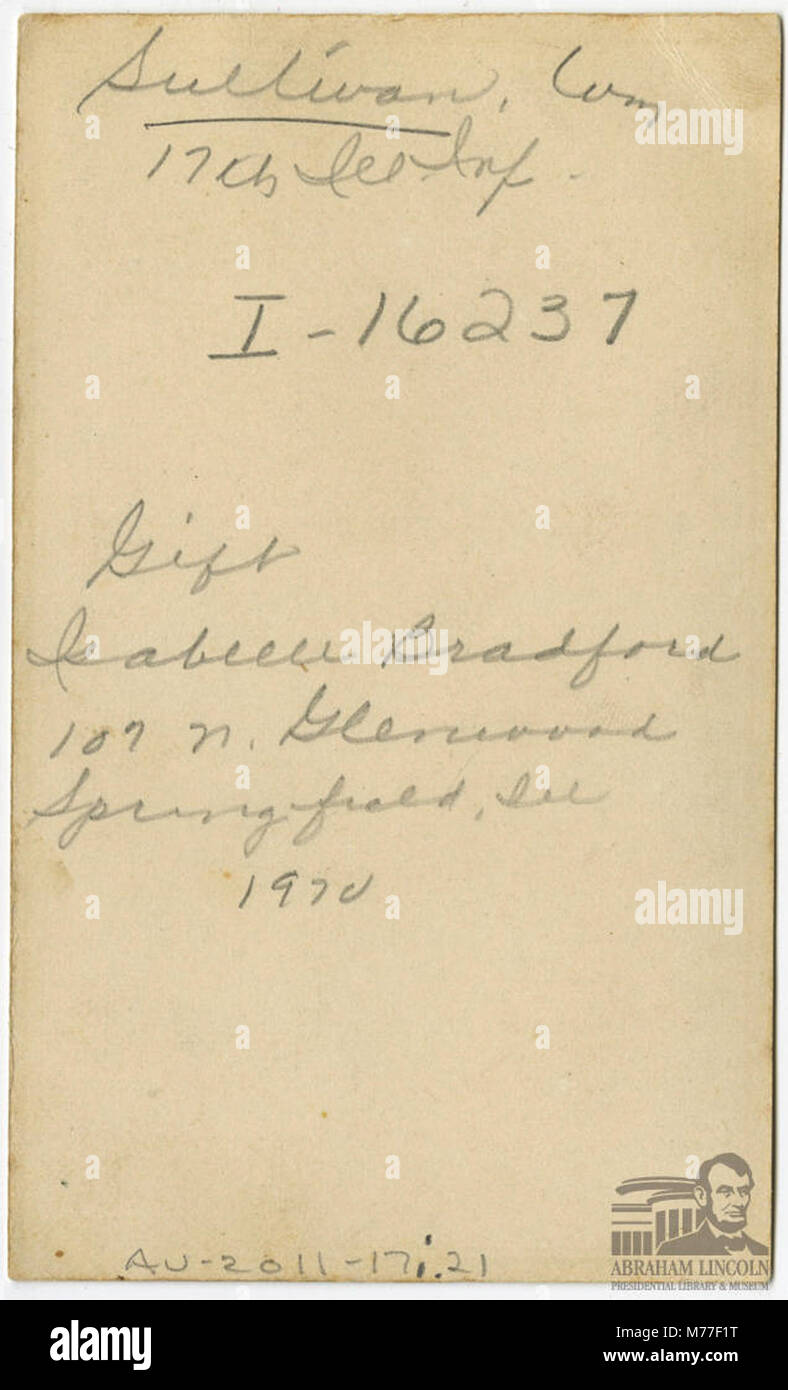 Sullivan, Wm
17th Ill Inf.
I-16237
Gift
Isabelle Bradford
107 N. Glenwood
Springfield, Ill
1970
AV-2011-17.21
ABRAHAM LINCOLN
PRESIDENTIAL LIBRARY & MUSEUM
alamy
Image ID: M77F1T
www.alamy.com